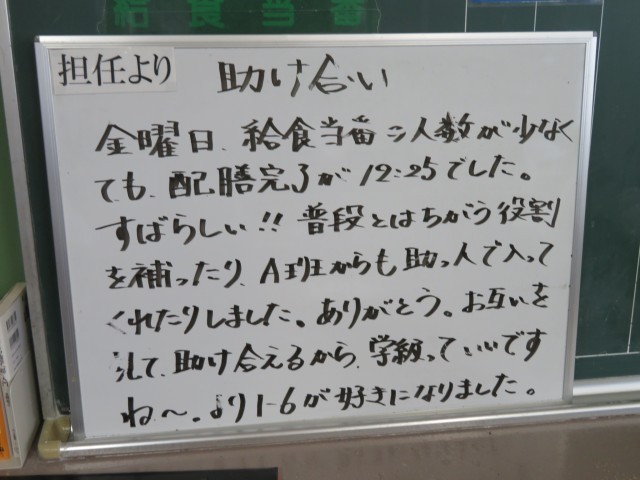 給食当番
担任より
助け合い
金曜日、給食当番の人数が少なく
ても、配膳完了が12:25でした。
すばらしい!! 普段とはちがう役割
を補ったり、A班からも助っ人で入って
くれたりしました。ありがとう。お互いを
して、助け合えるから、学級っていいです
ね〜。より1-6が好きになりました。